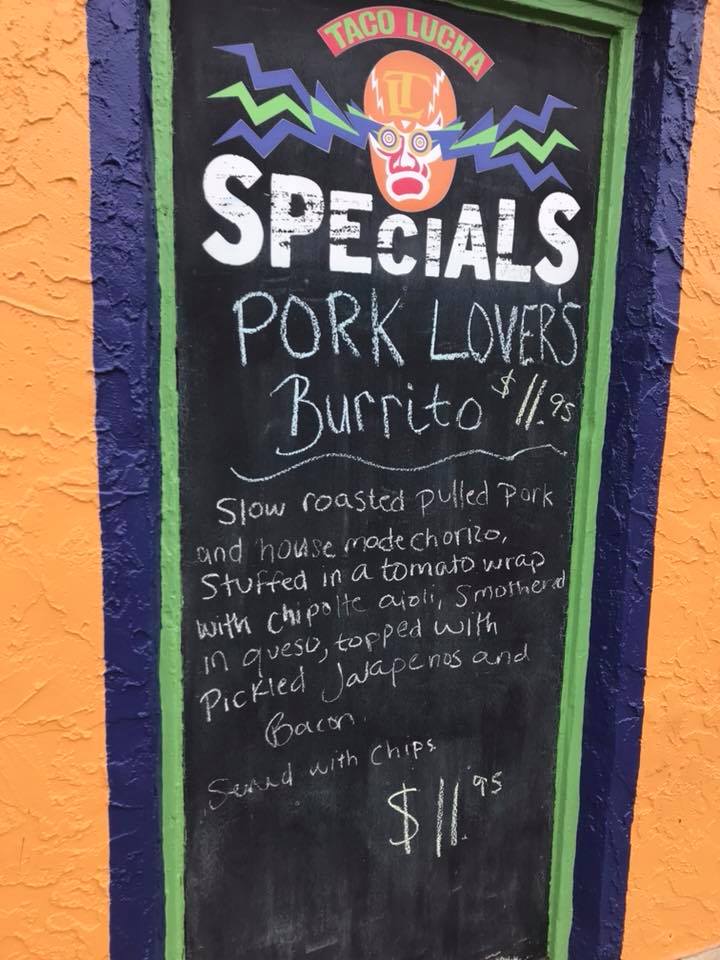 TACO LUCHA
TL
SPECIALS
PORK LOVER'S
Burrito $11.95
Slow roasted pulled Pork
and house made chorizo,
Stuffed in a tomato wrap
with chipolte aioli, Smothered
in queso, topped with
Pickled Jalapenos and
Bacon.
Served with Chips
$11.95